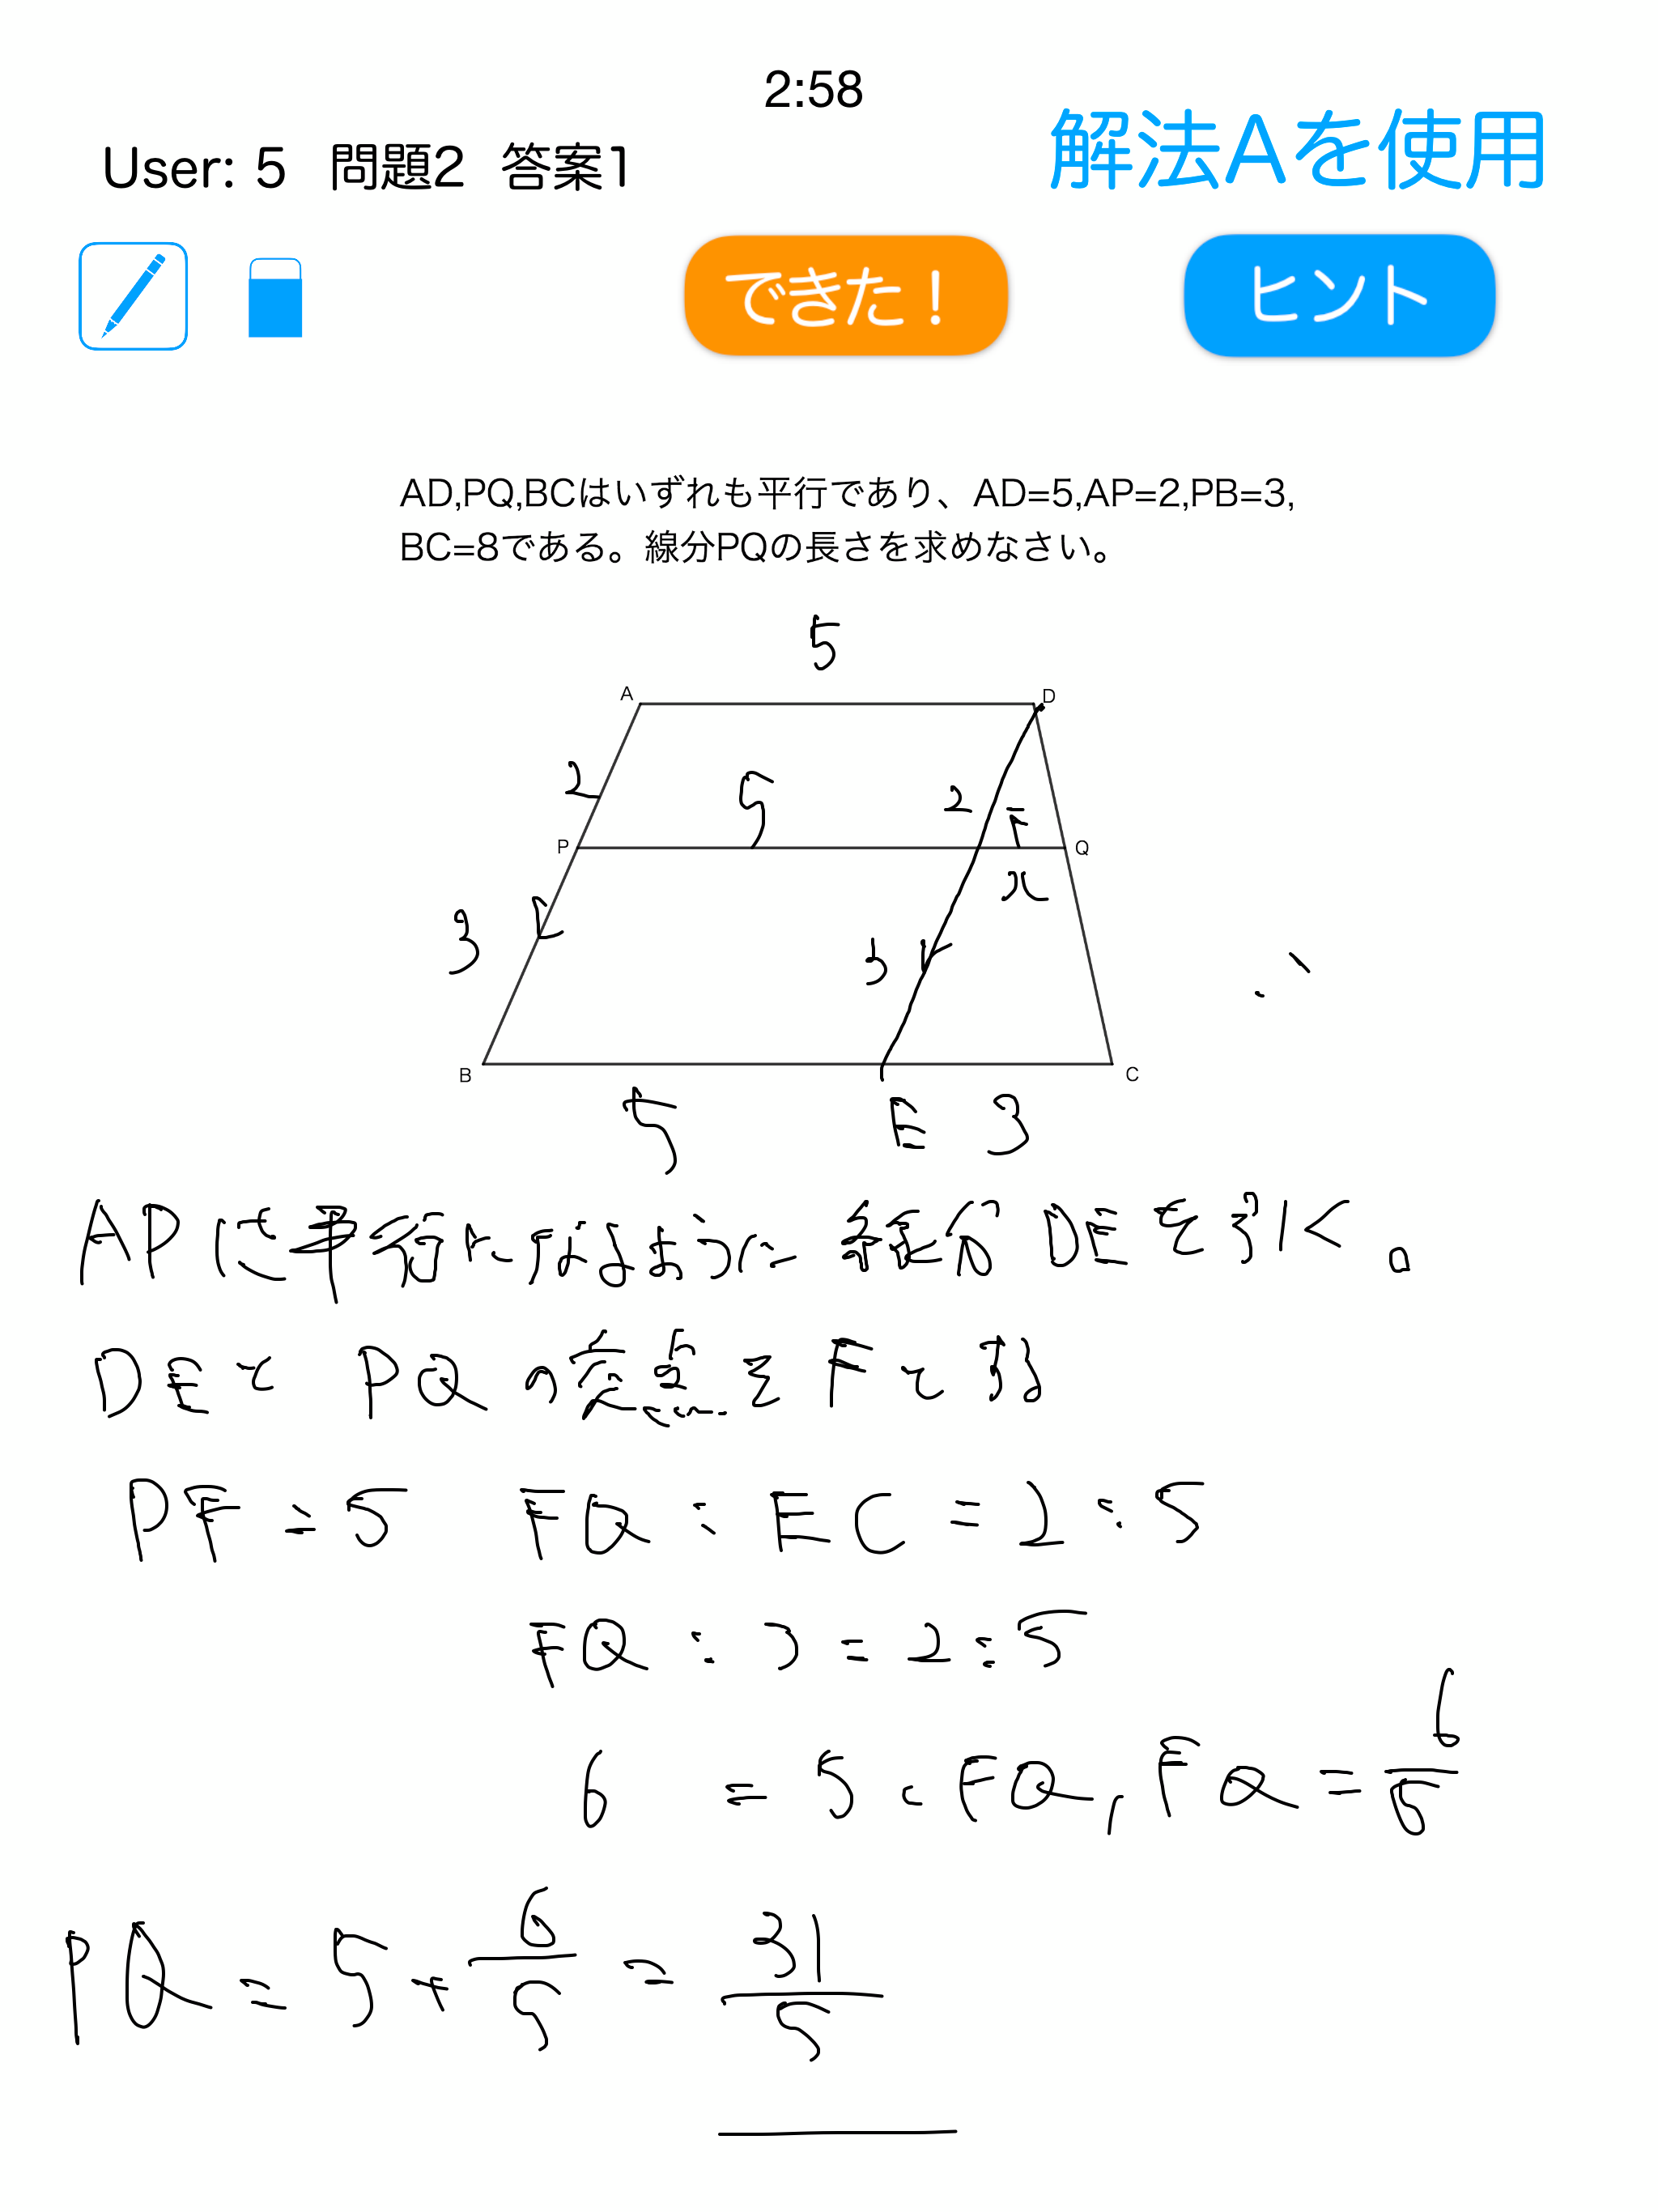 2:58
User: 5 問題2 答案1
解法Aを使用
できた！
ヒント
AD,PQ,BCはいずれも平行であり、AD=5,AP=2,PB=3,
BC=8である。線分PQの長さを求めなさい。
5
A
D
2
5
2
P
Q
x
3
3
B
C
5
E
3
APに平行になるように線分DEを引く。
DEとPQの交点をFとする
PF=5 FQ:EC=2:5
FQ:3=2:5
6=5・FQ, FQ=6/5
PQ=5+6/5=31/5